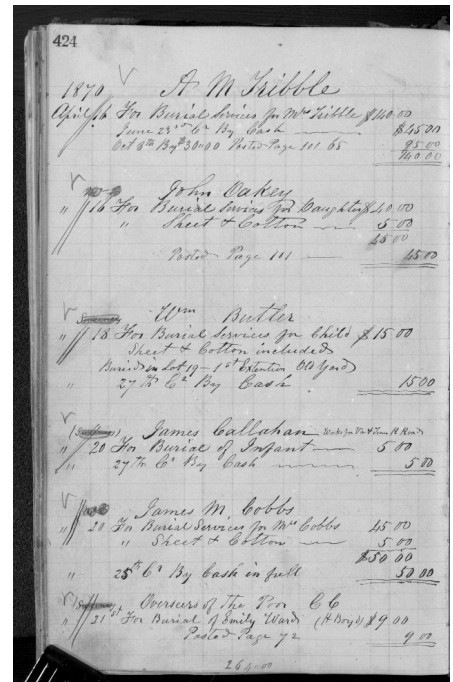 424
1870 A M Tribble
April 16 For Burial Services for Mrs Tribble $140.00
June 23rd Cr By Cash $45 00
Oct 8th By $30.00 Posted Page 101 65 95 00
140 00
John Oakey
" 16 For Burial Servises for Daughter $40 00
" Sheet & Cotton 5 00
45 00
Posted Page 101 45 00
Wm Butler
" 18 For Burial Services for Child $15 00
Sheet & Cotton included
Buried in Lot 19 - 1st Extention Old Yard
" 27th Cr By Cash 15 00
James Callahan Works for Va & Tenn R. Road
" 20 For Burial of Infant 5 00
" 27th Cr By Cash 5 00
James M. Cobbs
" 20 For Burial Services for Mrs Cobbs 45 00
" Sheet & Cotton 5 00
$50 00
" 25th Cr By Cash in full 50 00
Overseers of the Poor C C
" 21st For Burial of Emily Ward (A Boyd) $9 00
Posted Page 72 9 00
264.00